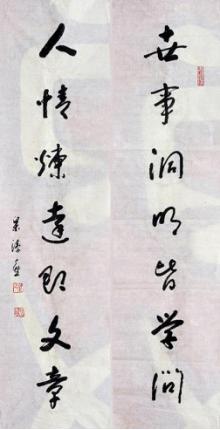 世事洞明皆学问
人情煉達即文章